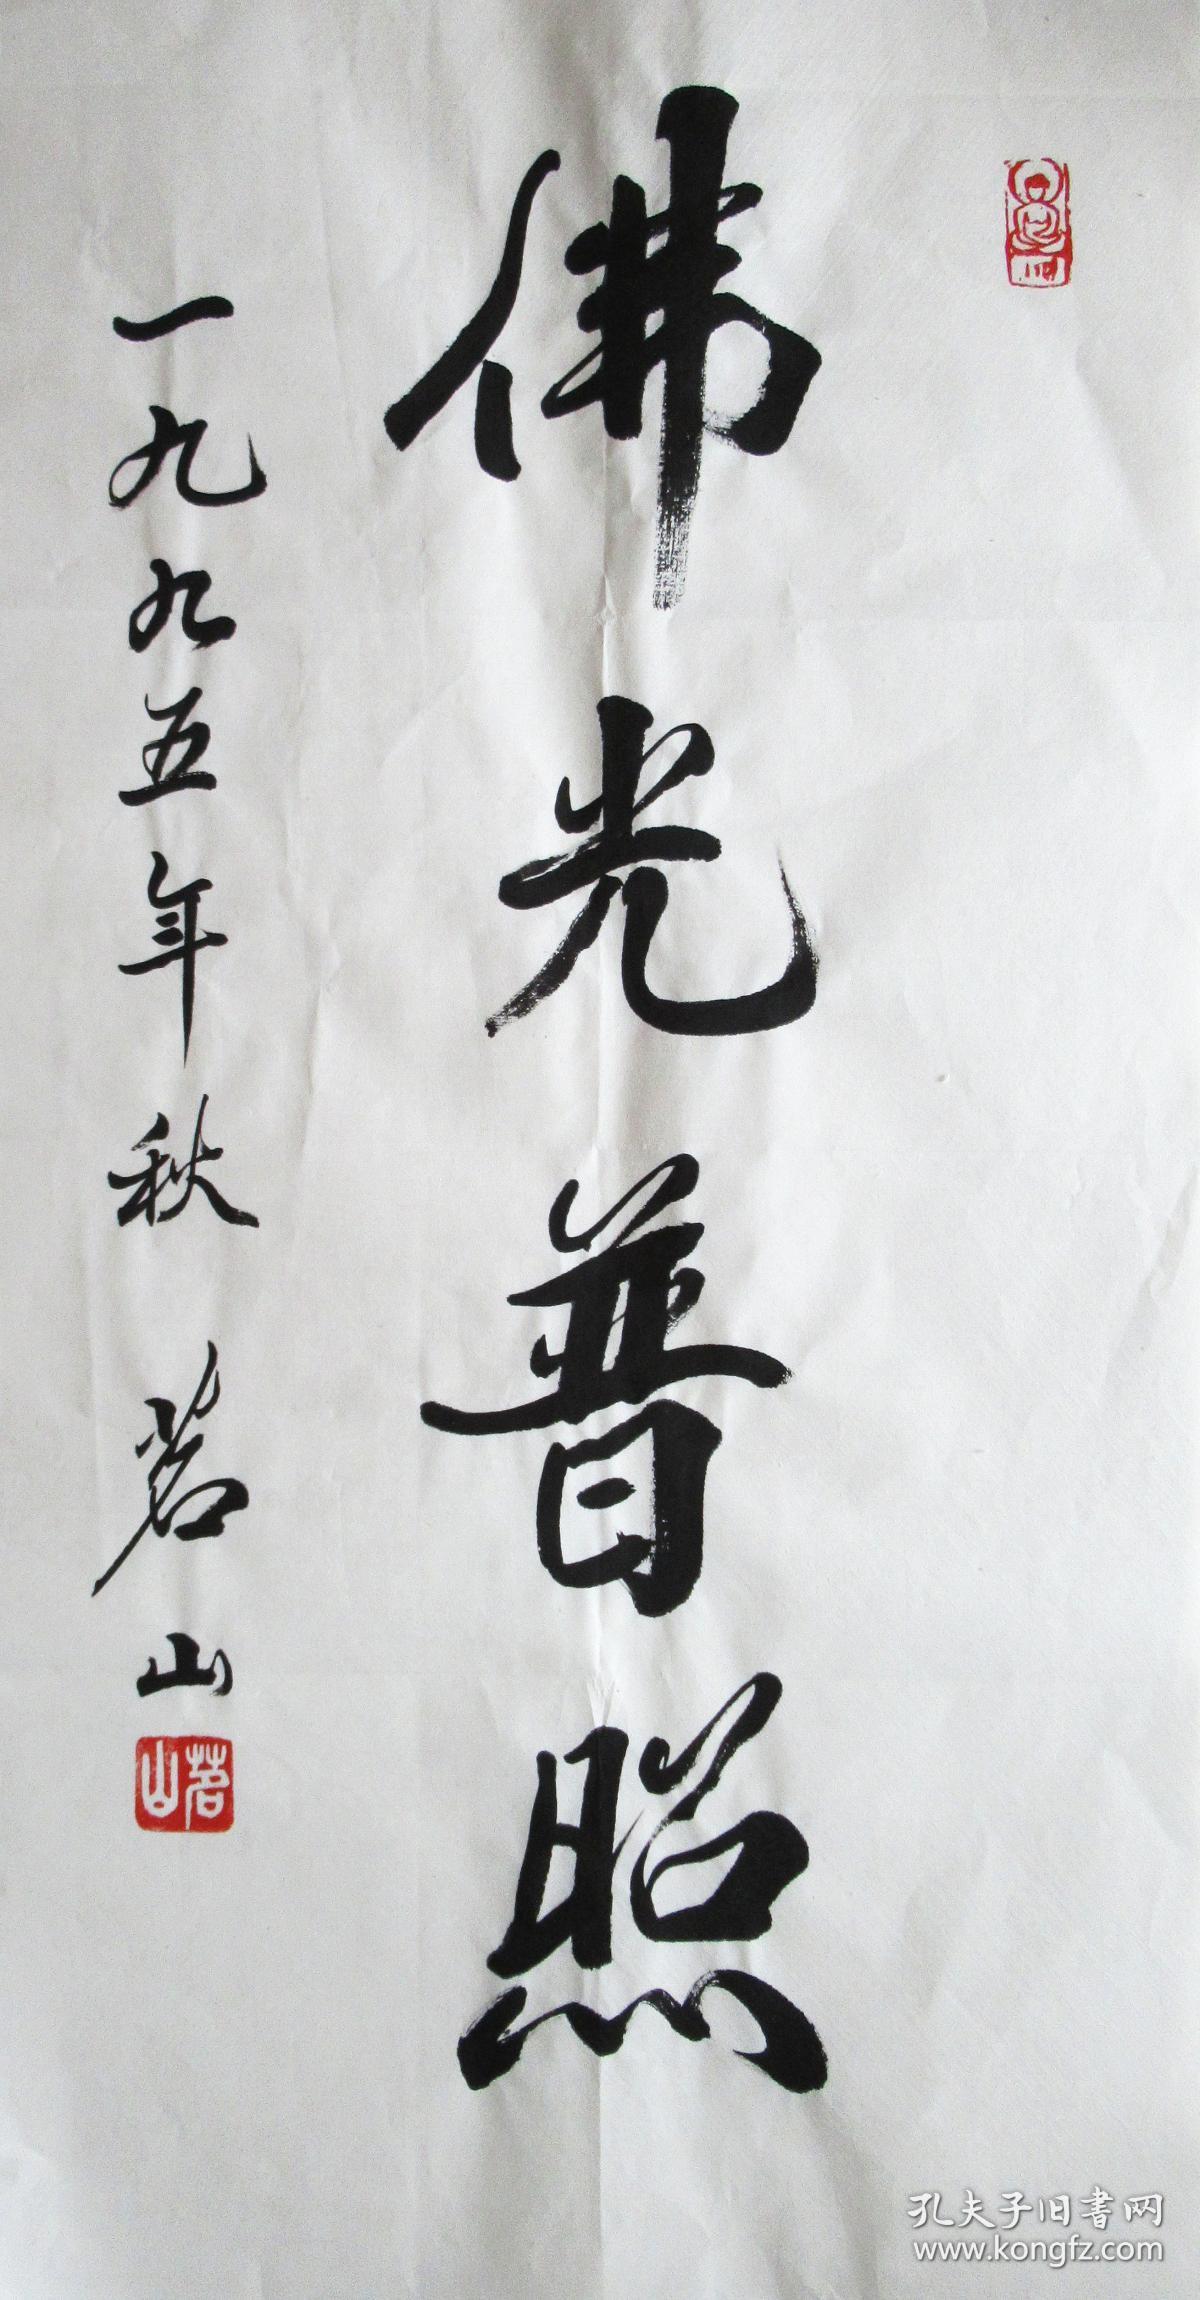 佛光普照
一九九五年秋 茗山
茗山
孔夫子旧书网
www.kongfz.com